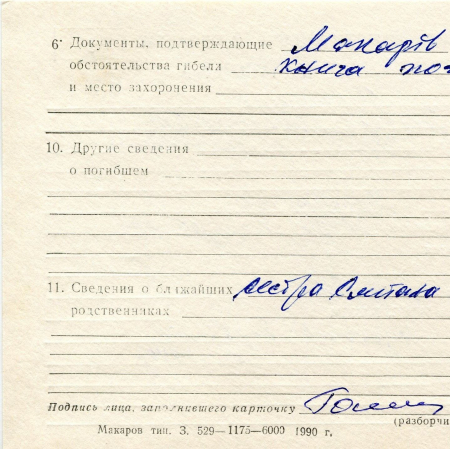 6· Документы, подтверждающие Макарів
обстоятельства гибели книга
и место захоронения
10. Другие сведения
о погибшем
11. Сведения о ближайших сестра Світлана
родственниках
Подпись лица, заполнившего карточку
(разборчи
Макаров тип. З. 529—1175—6000 1990 г.